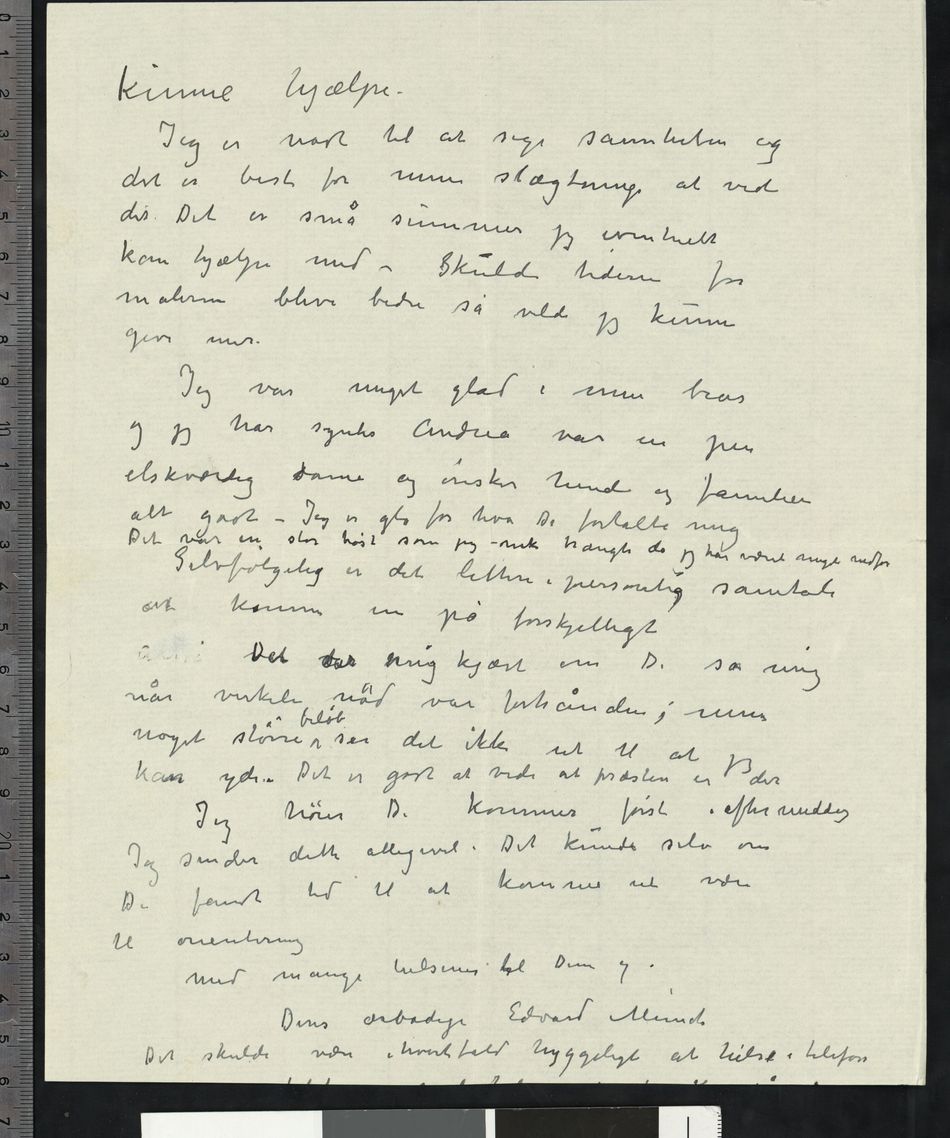 kunne hjælpe.
Jeg er nødt til at sige sannheten og
det er best for mine slægtninge at vid
det. Det er små summer jeg eventuelt
kan hjælpe med – Skulde tiderne for
malerne blive bedre så vilde jeg kunne
give mer.
Jeg var meget glad i min bror
og jeg har synes Andrea var en pen
elskværdig dame og ønsker hende og familien
alt godt – Jeg er gla for hva De fortalte mig
Det var en stor høst som jeg nok trængte da jeg har været meget nedfor
Selvfølgelig er det lettere i personlig samtale
at komme in på forskjelligt
Det var mig kjært om De sa mig
når virkelig nød var forhånden; men
noget større beløb ser det ikke ut til at jeg
kan yde. Det er godt at vide at præsten er der
Jeg hører De kommer først i eftermiddag
Jeg sender dette allegivel. Det kunde selv om
De fandt tid til at komme ut være
til orientering
Med mange hilsener til Dem og
Deres ærbødige Edvard Munch
Det skulde være i hvertfald hyggeligt at hilse i telefon